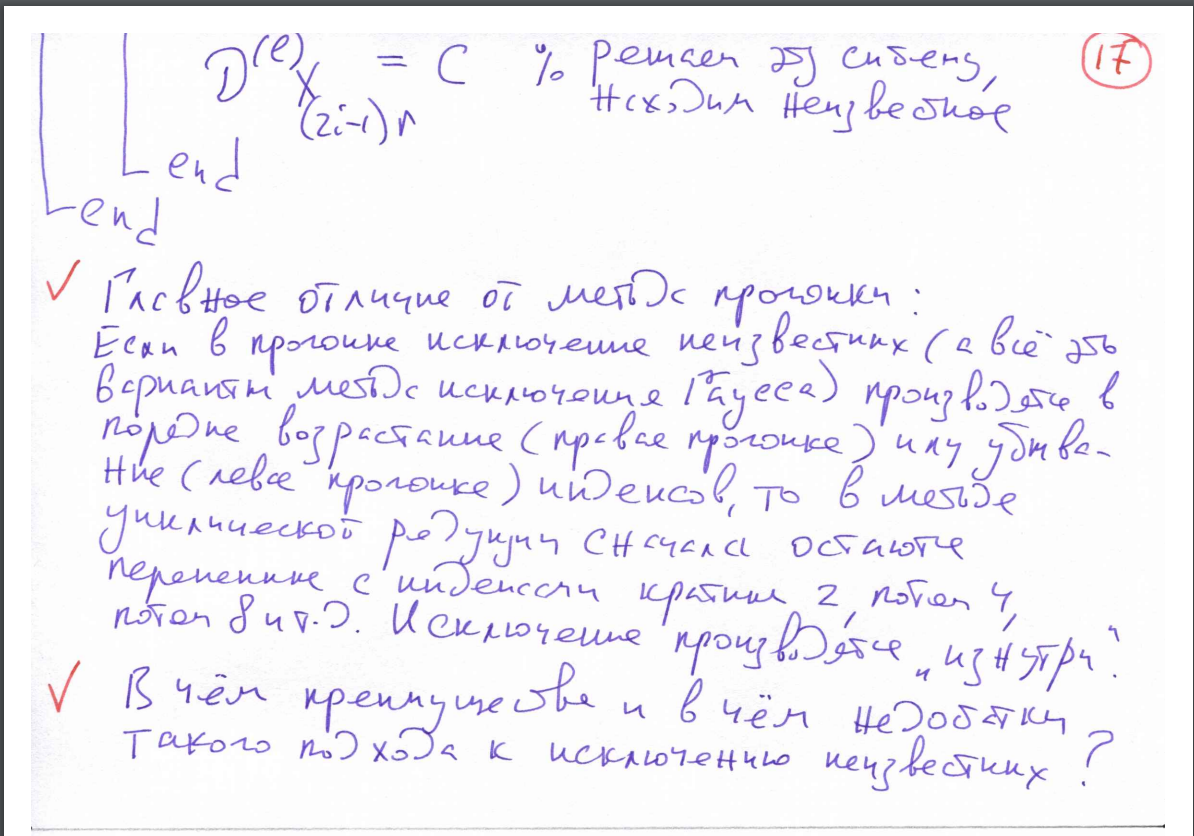 D^(l) x_(2i-1)r = C % Решаем эту систему, (17)
Находим неизвестное
end
end
✓ Главное отличие от метода прогонки:
Если в прогонке исключение неизвестных (а всё это
варианты метода исключения Гаусса) производятся в
порядке возрастания (правая прогонка) или убыва-
ния (левая прогонка) индексов, то в методе
циклической редукции сначала остаются
переменные с индексами кратным 2, потом 4,
потом 8 и т.д. Исключение производятся „изнутри“.
✓ В чём преимущества и в чём недостатки
такого подхода к исключению неизвестных?